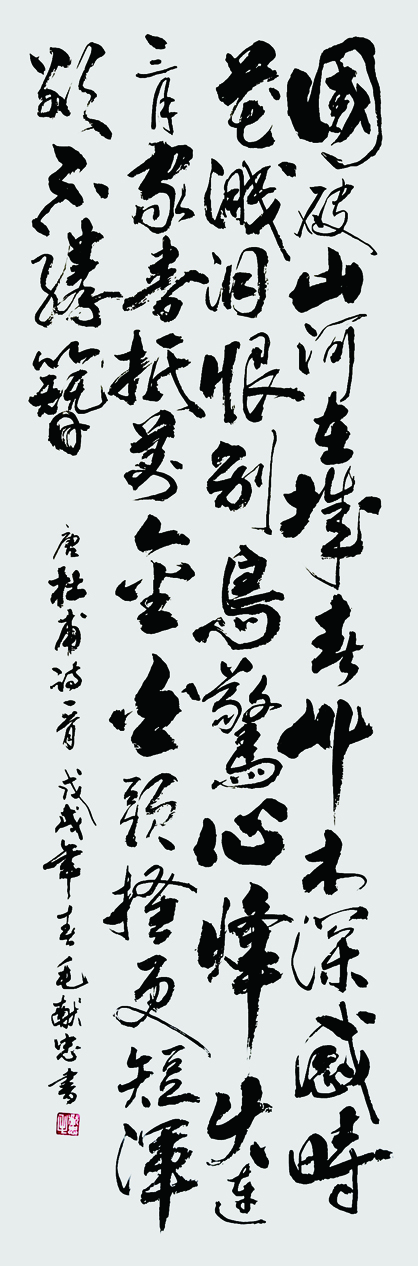 國破山河在城春艸木深感時
花濺泪恨别鳥驚心烽火連
三月家書抵萬金白頭搔更短渾
欲不勝簪
唐杜甫诗一首 戊戌年春毛献忠書